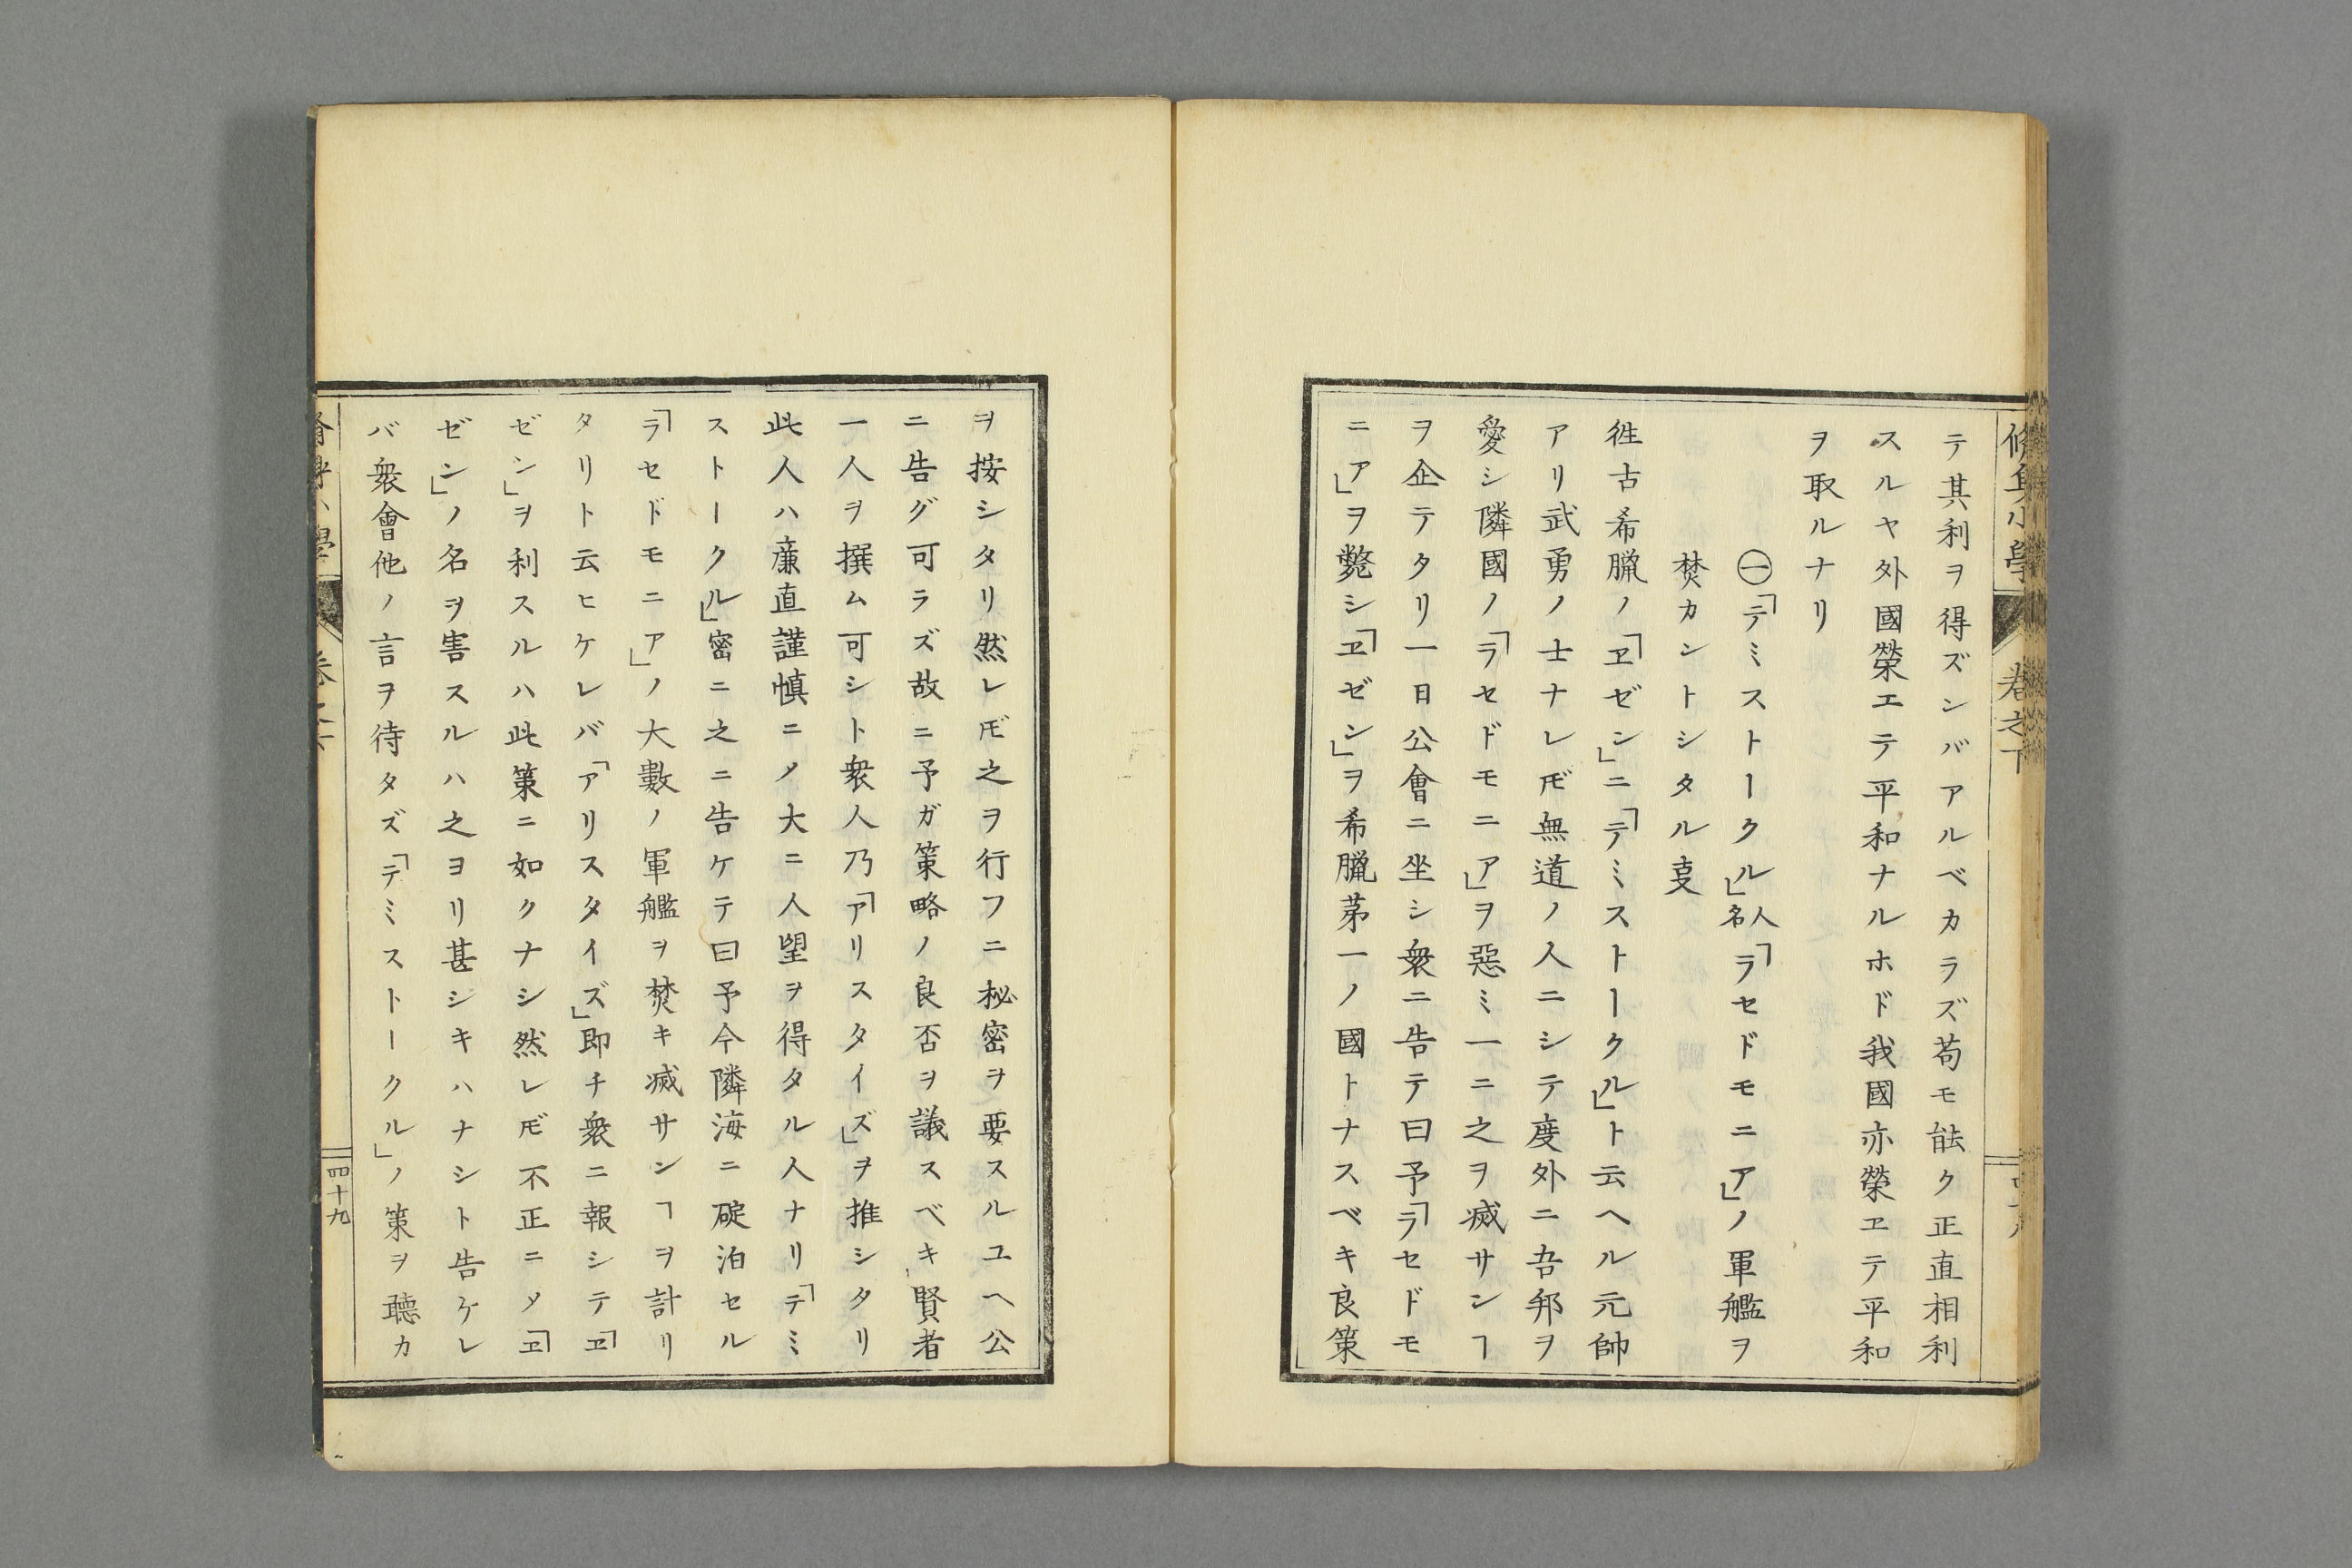 修身小學 卷之下
テ其利ヲ得ズンバアルベカラズ苟モ能ク正直相利
スルヤ外國榮エテ平和ナルホド我國亦榮ヱテ平和
ヲ取ルナリ
㊀「テミストークル」人名「ラセドモニア」ノ軍艦ヲ
焚カントシタル叓
徃古希臘ノ「ヱゼン」ニ「テミストークル」ト云ヘル元帥
アリ武勇ノ士ナレ𪜈無道ノ人ニシテ度外ニ吾邦ヲ
愛シ隣國ノ「ラセドモニア」ヲ惡ミ一ニ之ヲ滅サンヿ
ヲ企テタリ一日公會ニ坐シ衆ニ告テ曰予「ラセドモ
ニア」ヲ斃シ「ヱゼン」ヲ希臘茅一ノ國トナスベキ良策
ヲ按シタリ然レ𪜈之ヲ行フニ秘密ヲ要スルユヘ公
ニ告グ可ラズ故ニ予ガ策略ノ良否ヲ議スベキ賢者
一人ヲ撰ム可シト衆人乃「アリスタイズ」ヲ推シタリ
此人ハ廉直謹慎ニメ大ニ人望ヲ得タル人ナリ「テミ
ストークル」密ニ之ニ告ケテ曰予今隣海ニ碇泊セル
「ラセドモニア」ノ大數ノ軍艦ヲ焚キ滅サンヿヲ計リ
タリト云ヒケレバ「アリスタイズ」即チ衆ニ報シテ「ヱ
ゼン」ヲ利スルハ此策ニ如クナシ然レ𪜈不正ニメ「ヱ
ゼン」ノ名ヲ害スルハ之ヨリ甚シキハナシト告ケレ
バ衆會他ノ言ヲ待タズ「テミストークル」ノ策ヲ聽カ
四十九